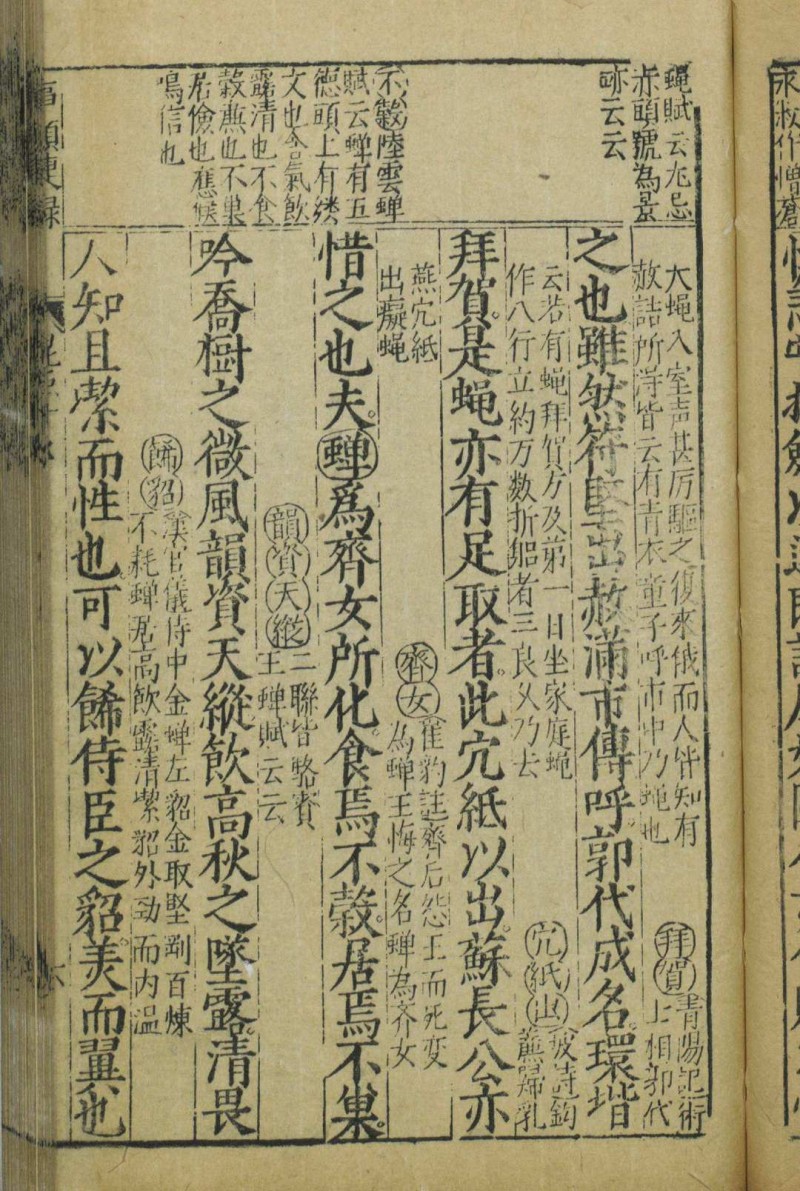 蝇賦云尤忌
赤頭號為景
迹云云
不穀陸雲蟬
賦云蟬有五
德頭上有緌
文也含氣飲
露清也不食
穀廉也不巢
居儉也應候
鳴信也
大蝇入室声甚厉驅之復來俄而人皆知有
赦詰所得皆云有青衣童子呼市中乃蝇也
拜賀青陽記術
上相郭代
之也雖然符堅出赦滿市傳呼郭代成名環堦
云若有蝇拜賀方及第一日坐家庭蝇
作八行立約万数折躬者三良乆乃去
穴紙出坡詩鈎
蕪歸乳
拜賀是蝇亦有足取者此穴紙以出蘇長公亦
燕穴紙
出癡蝇
齊女崔豹註齊后怨王而死变
為蟬王悔之名蟬為齐女
惜之也夫蟬爲齊女所化食焉不穀居焉不巢
韻資天縱二聯皆駱賓
王蟬賦云云
吟喬樹之微風韻資天縱飲高秋之墜露清畏
餙貂漢官儀侍中金蟬左貂金取堅剛百煉
不耗蟬居高飲露清潔貂外勁而内温
人知且潔而性也可以餙侍臣之貂美而翼也